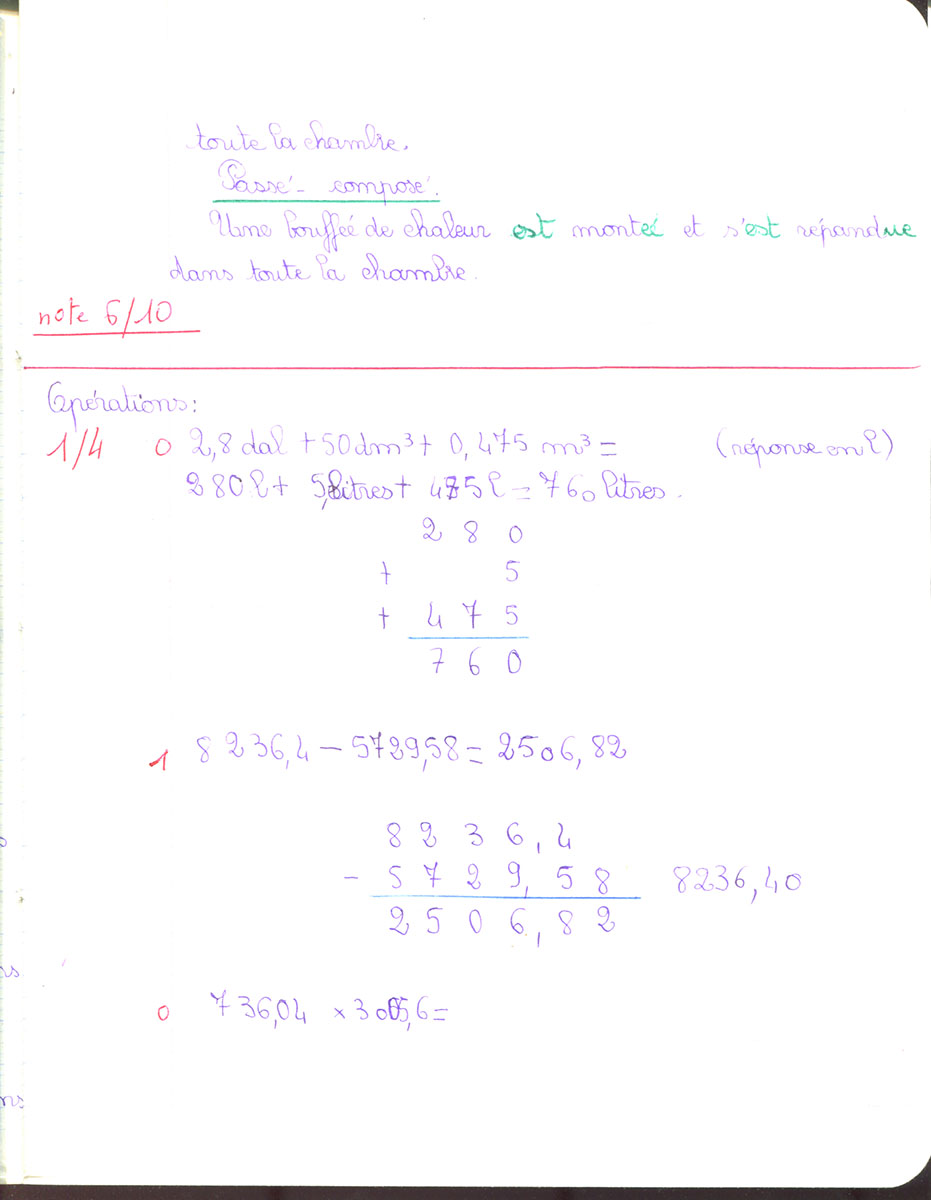 toute la chambre.
Passé-composé.
Une bouffée de chaleur est montée et s'est répandue
dans toute la chambre.
note 6/10
Opérations:
1/4 0 2,8 dal + 50 dm³ + 0,475 m³ = (réponse en l)
280 l + 5 litres + 475 l = 760 litres.
2 8 0
+ 5
+ 4 7 5
7 6 0
1 8236,4 - 5729,58 = 2506,82
8 2 3 6,4
- 5 7 2 9,5 8 8236,40
2 5 0 6,8 2
0 736,04 ×